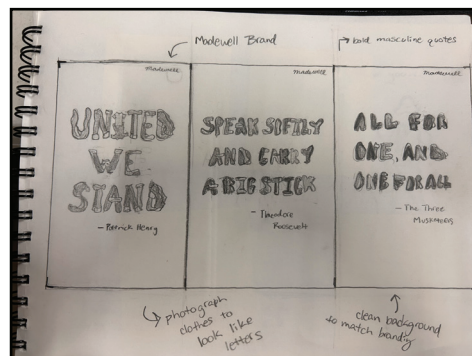 Madewell Brand
bold masculine quotes
madewell
UNITED
WE
STAND
- Patrick Henry
madewell
SPEAK SOFTLY
AND CARRY
A BIG STICK
- Theodore
Roosevelt
madewell
ALL FOR
ONE, AND
ONE FOR ALL
- The Three
Musketeers
photograph
clothes to
look like
letters
clean background
to match branding